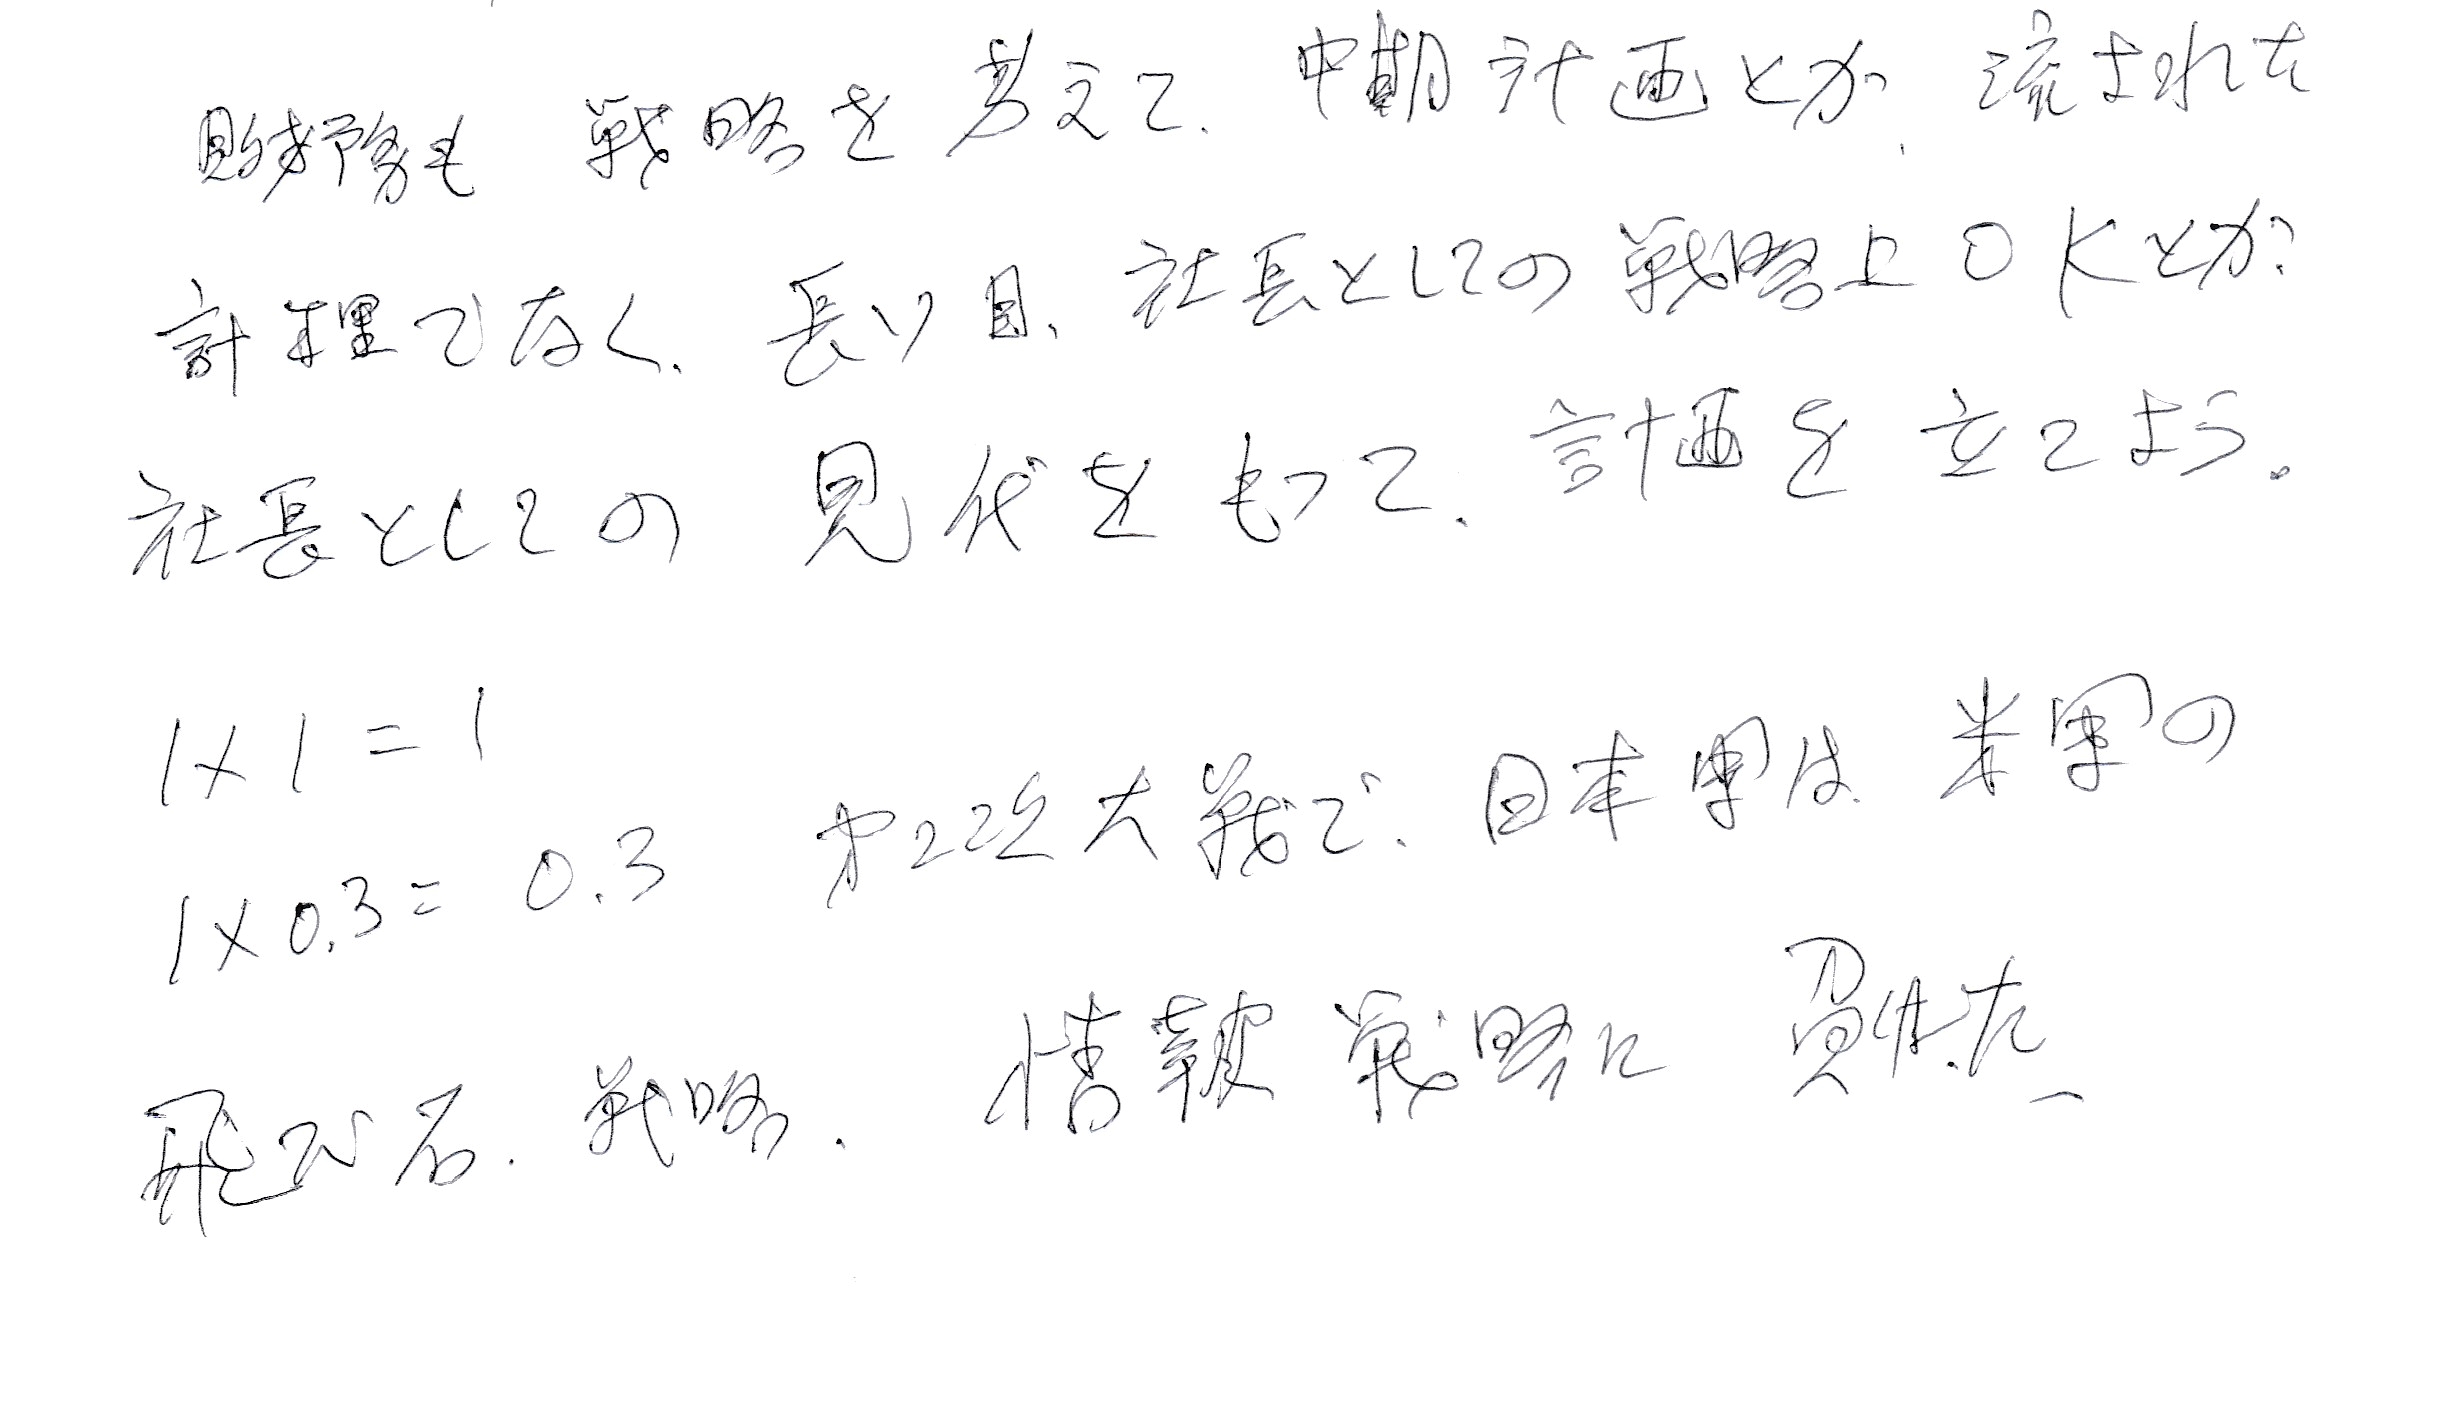 財務も 戦略を考えて、中期計画とか、流された
計理でなく、長い目、社長としての戦略上OKとか?
社長としての 見代をもって、計画を立てよう。
1×1=1
1×0.3=0.3 第2次大戦で、日本軍は、米軍の
飛び石、戦略、情報戦略に 負けた